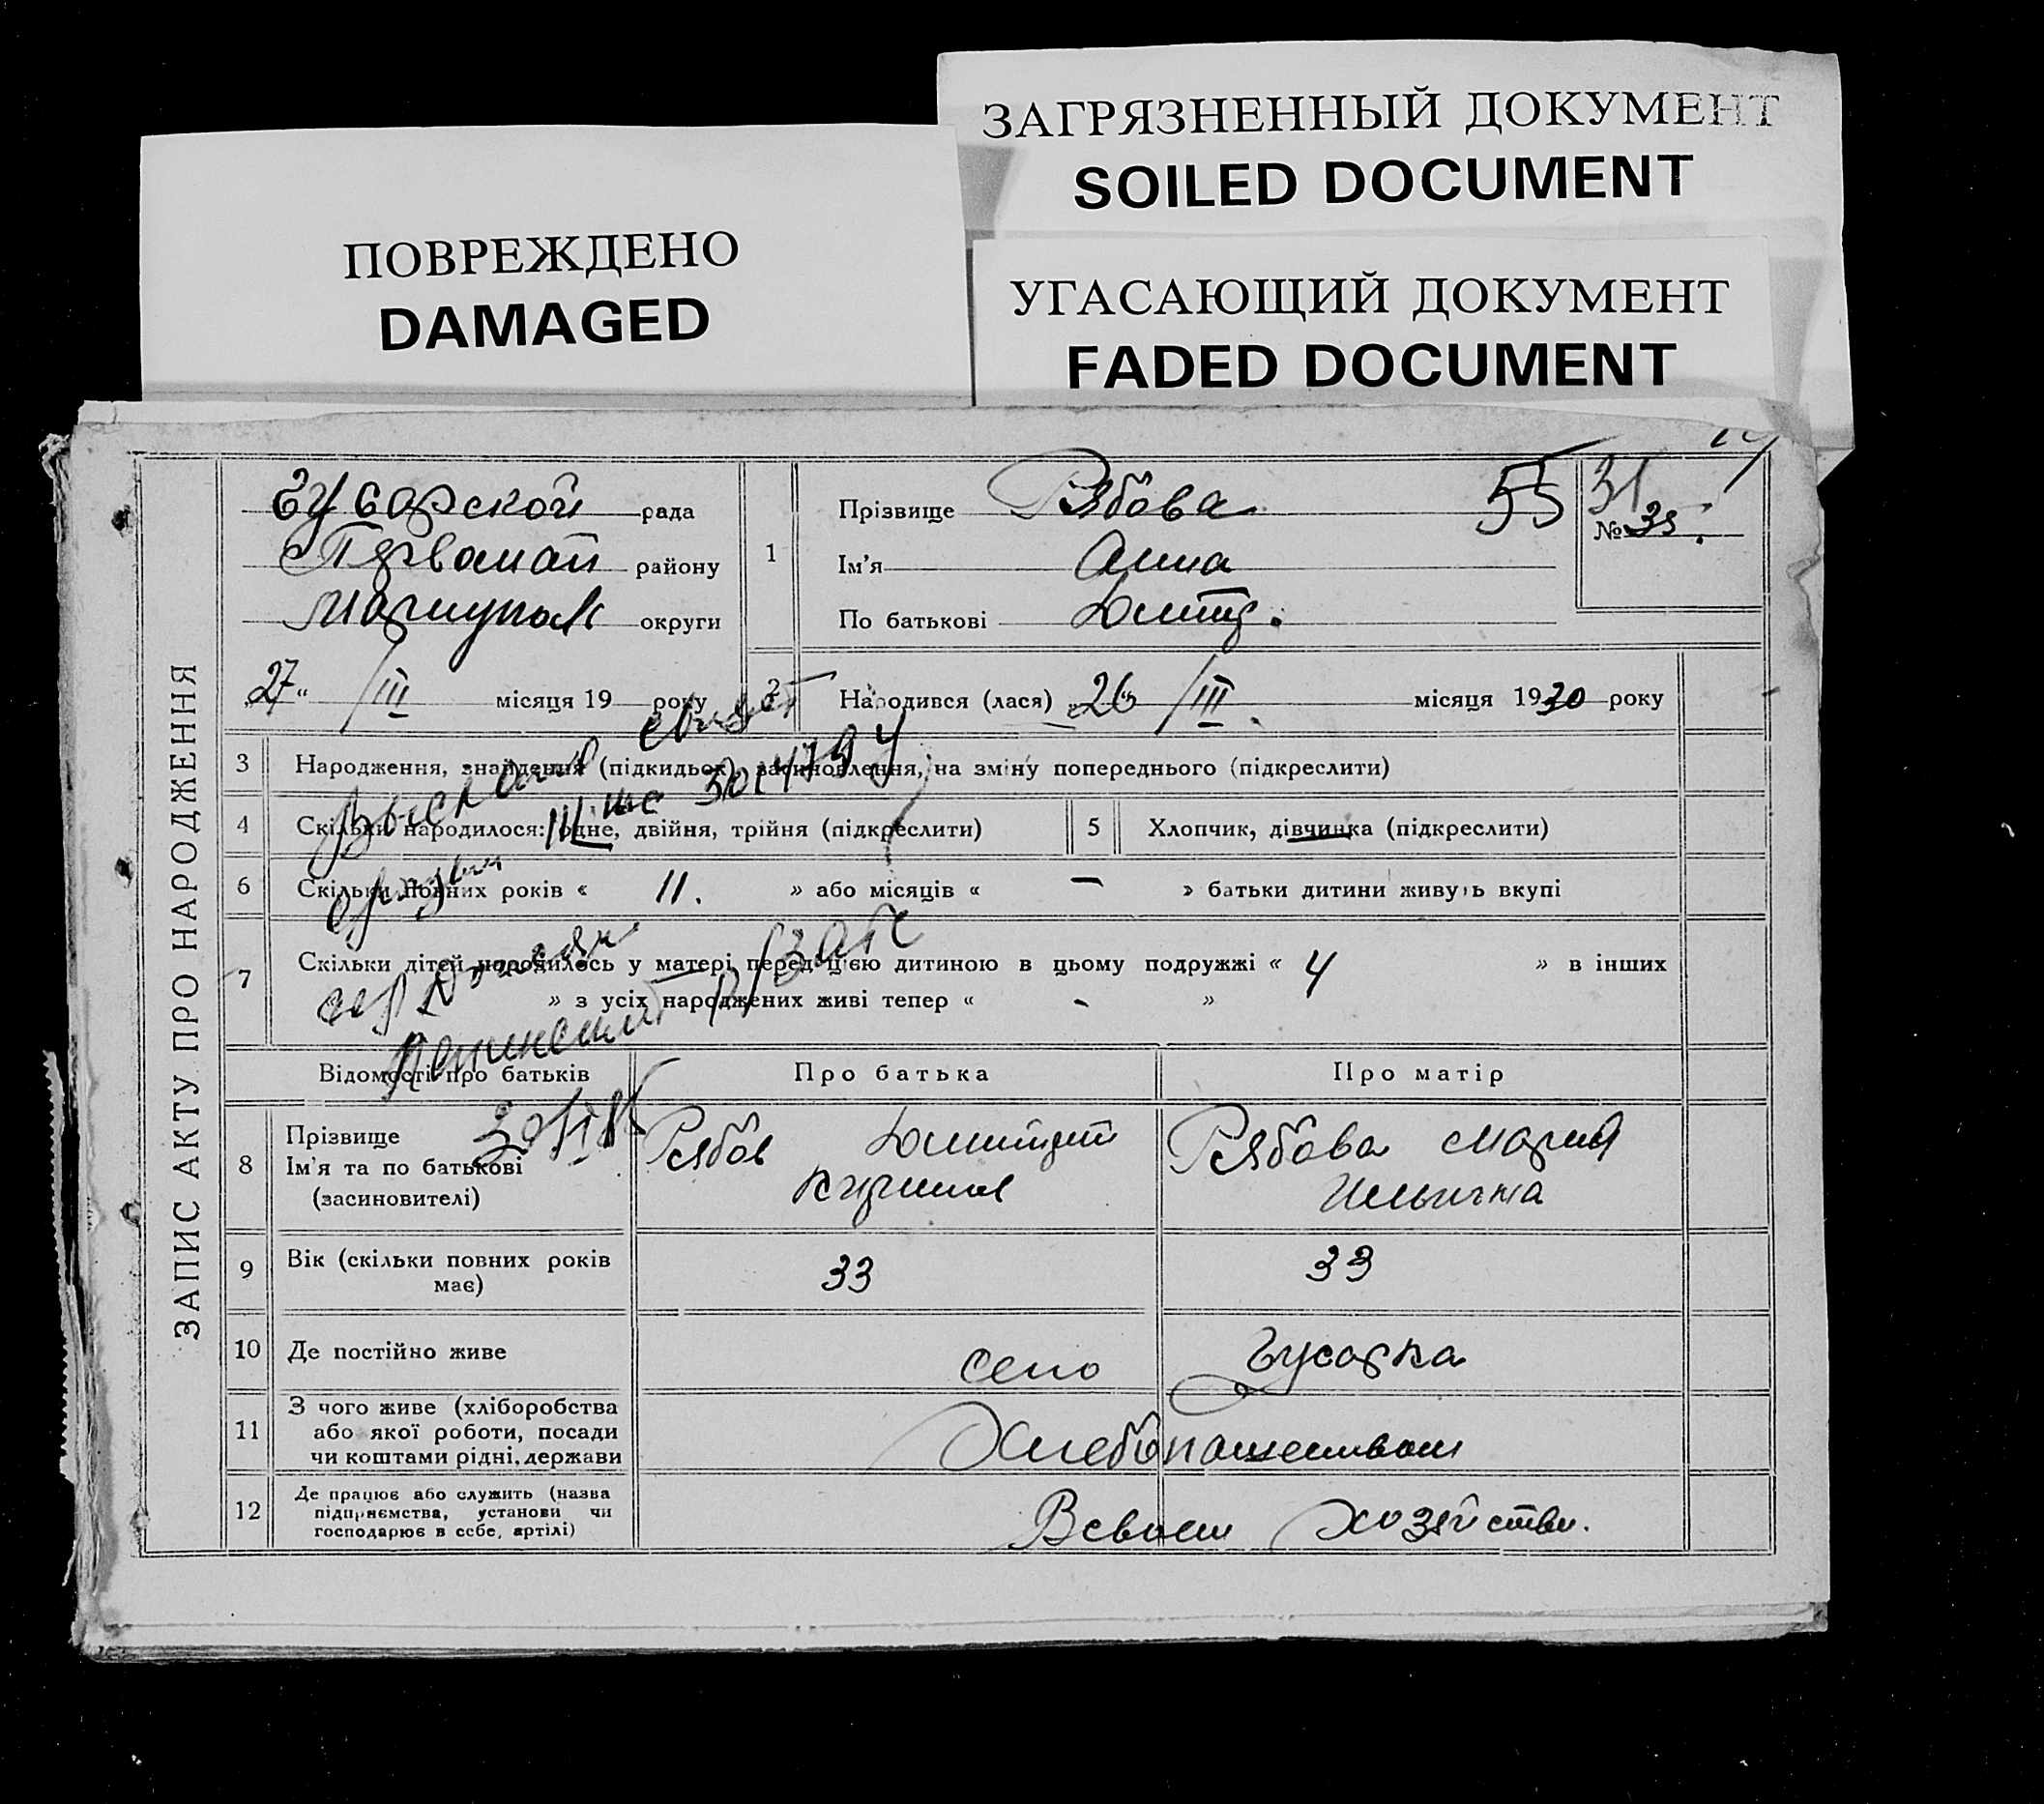 ЗАГРЯЗНЕННЫЙ ДОКУМЕНТ
SOILED DOCUMENT
ПОВРЕЖДЕНО
DAMAGED
УГАСАЮЩИЙ ДОКУМЕНТ
FADED DOCUMENT
ЗАПИС АКТУ ПРО НАРОДЖЕННЯ
Гусарской рада
района району
Мариупол округи
„27“ /III місяця 19 року
1 Прізвище Рябова 55
Ім'я Анна
По батькові Дмитр.
31
№ 35.
2 Народився (лася) „26“ /III. місяця 1930 року
3 Народження, знайдення (підкидьок), засиновлення, на зміну попереднього (підкреслити)
4 Скільки народилося: одне, двійня, трійня (підкреслити)
5 Хлопчик, дівчинка (підкреслити)
6 Скільки повних років « 11. » або місяців « — » батьки дитини живуть вкупі
7 Скільки дітей народилось у матері перед цією дитиною в цьому подружжі « 4 » в інших
» з усіх народжених живі тепер « - »
Відомості про батьків Про батька Про матір
8 Прізвище
Ім'я та по батькові
(засиновителі)
Рябов Дмитрий
Рябова Мария
Ильинична
9 Вік (скільки повних років
має)
33 33
10 Де постійно живе село Гусарка
11 З чого живе (хліборобства
або якої роботи, посади
чи коштами рідні, держави
Хлебопашеством
12 Де працює або служить (назва
підприємства, установи чи
господарює в себе, артілі)
В своем хозяйстве.